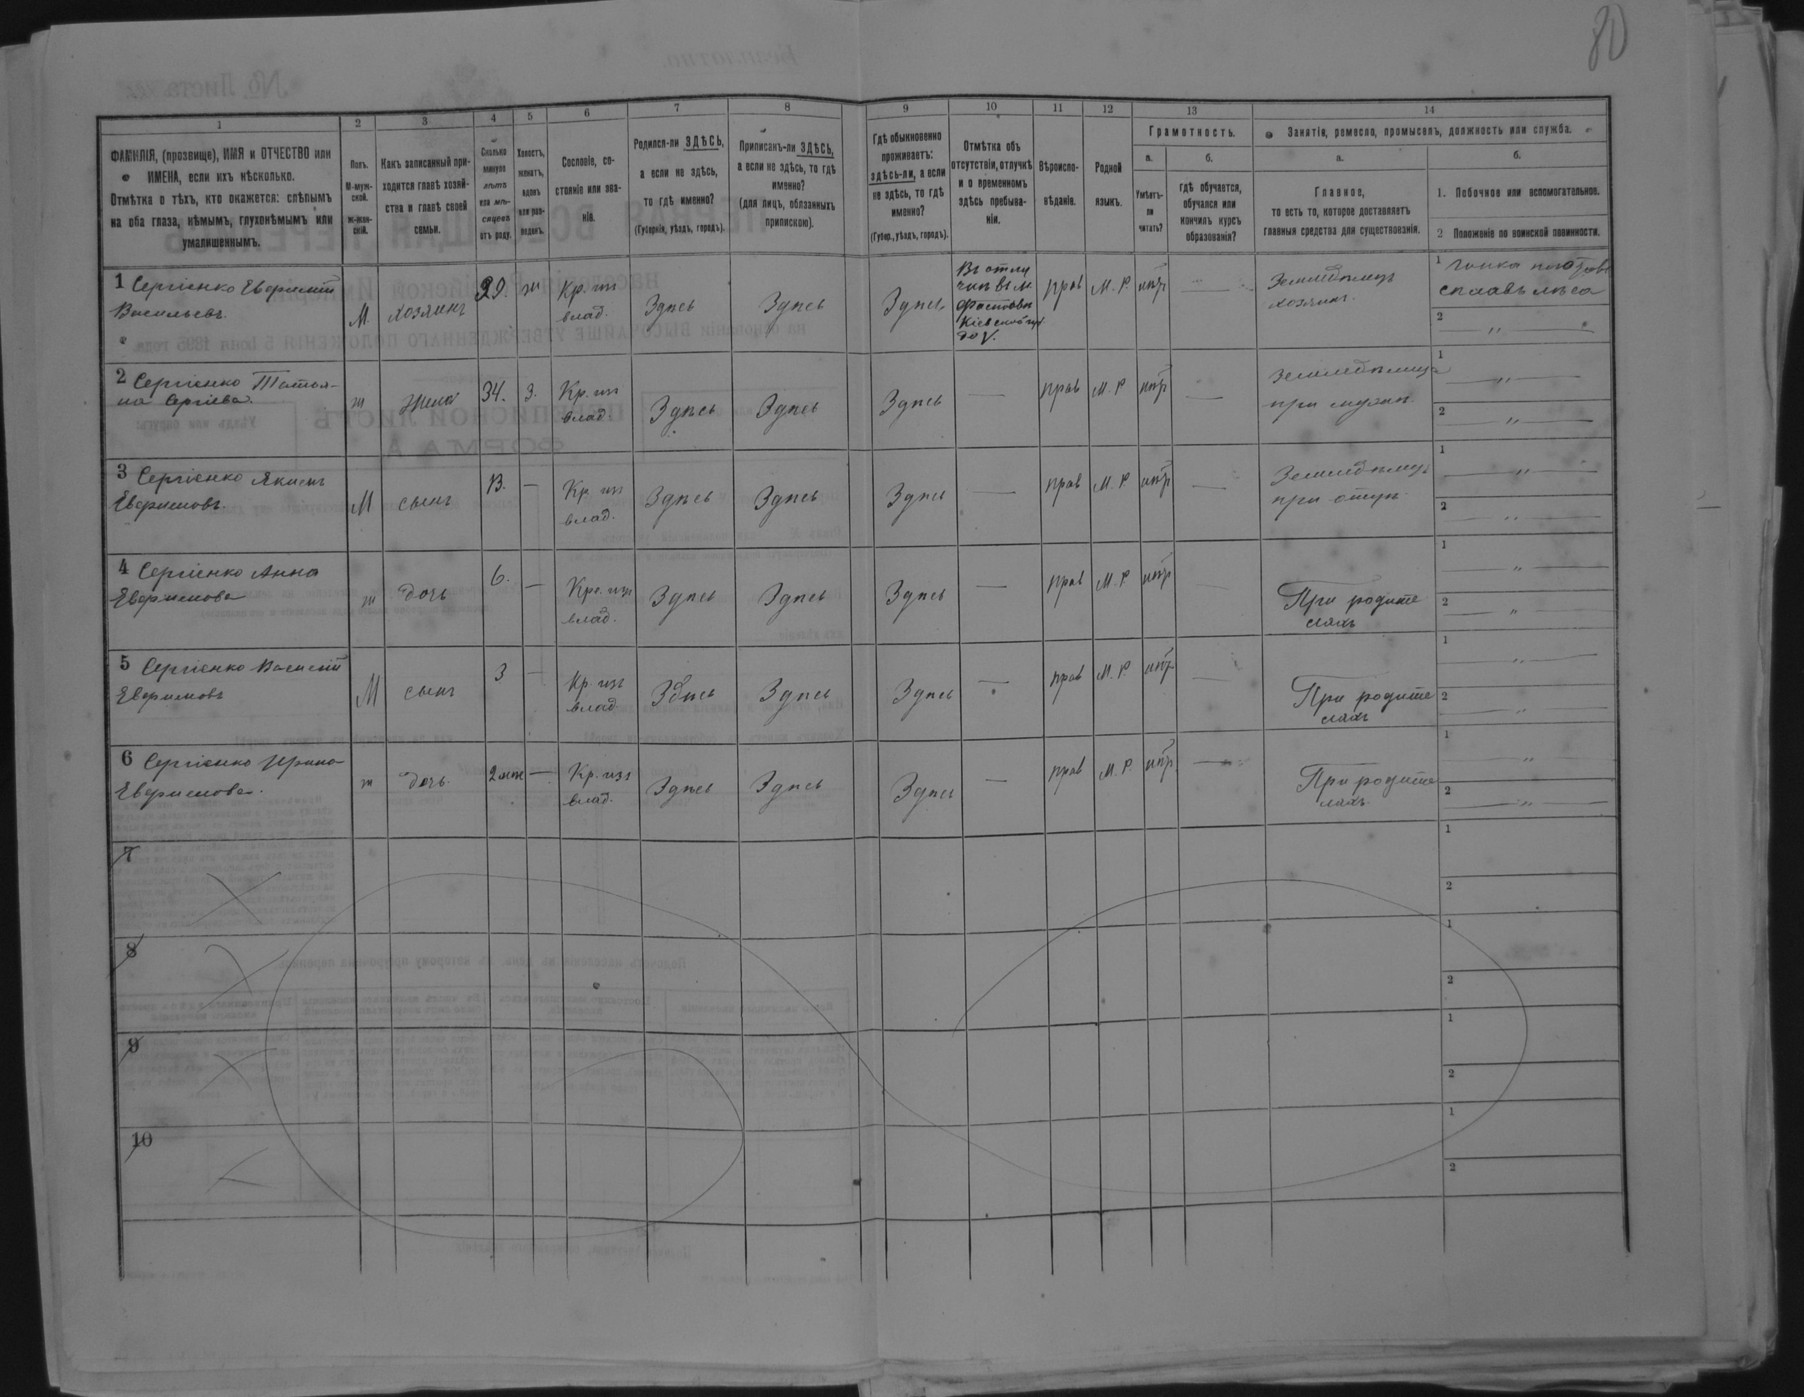 80
1 2 3 4 5 6 7 8 9 10 11 12 13 14
ФАМИЛІЯ, (прозвище), ИМЯ и ОТЧЕСТВО или
ИМЕНА, если ихъ нѣсколько.
Отмѣтка о тѣхъ, кто окажется: слѣпымъ
на оба глаза, нѣмымъ, глухонѣмымъ или
умалишеннымъ.
Полъ.
М-муж-
ской.
ж-жен-
скій.
Какъ записанный при-
ходится главѣ хозяй-
ства и главѣ своей
семьи.
Сколько
минуло
лѣтъ
или мѣ-
сяцевъ
отъ роду.
Холостъ,
женатъ,
вдовъ
или раз-
веденъ.
Сословіе, со-
стояніе или зва-
ніе.
Родился-ли ЗДѢСЬ,
а если не здѣсь,
то гдѣ именно?
(Губернія, уѣздъ, городъ).
Приписанъ-ли ЗДѢСЬ,
а если не здѣсь, то гдѣ
именно?
(для лицъ, обязанныхъ
припискою).
Гдѣ обыкновенно
проживаетъ:
здѣсь-ли, а если
не здѣсь, то гдѣ
именно?
(Губер., уѣздъ, городъ).
Отмѣтка объ
отсутствіи, отлучкѣ
и о временномъ
здѣсь пребыва-
ніи.
Вѣроиспо-
вѣданіе.
Родной
языкъ.
Грамотность.
а.
Умѣетъ-
ли
читать?
б.
гдѣ обучается,
обучался или
кончилъ курсъ
образованія?
Занятіе, ремесло, промыселъ, должность или служба.
а.
Главное,
то есть то, которое доставляетъ
главныя средства для существованія.
б.
1. Побочное или вспомогательное.
2 Положеніе по воинской повинности.
1 Сергіенко Евфимій
Васильевъ.
М хозяинъ 39. ж Кр. изъ
влад. Здѣсь Здѣсь Здѣсь
Въ отлу
чкѣ въ м.
Фастовъ
Кіевской
прав М. Р. нѣтъ —
Земледѣлецъ
хозяинъ.
1
сплавъ лѣса
2 "
2 Сергіенко Татья-
на Сергіева.
ж жена 34. З. Кр. из
влад. Здѣсь Здѣсь Здѣсь — прав М. Р нѣтъ —
при мужѣ
1 "
2 "
3 Сергіенко Якимъ
Евфимовъ.
М сынъ 13. — Кр. из
влад. Здѣсь Здѣсь Здѣсь — прав М. Р нѣтъ —
Земледѣлецъ
при отцѣ.
1 "
2 "
4 Сергіенко Анна
Евфимова
ж дочь 6. — Кр. изъ
влад. Здѣсь Здѣсь Здѣсь — прав М. Р нѣтъ
При родите
ляхъ
1 "
2 "
5 Сергіенко Василій
Евфимовъ
М сынъ 3 — Кр. изъ
влад. Здѣсь Здѣсь Здѣсь — прав М. Р. нѣтъ —
При родите
ляхъ
1 "
2 "
6 Сергіенко Ирина
Евфимова.
ж дочь. 2 — Кр. изъ
влад. Здѣсь Здѣсь Здѣсь — прав М. Р. нѣтъ —
При родите
ляхъ
1 "
2 "
7
1
2
8
1
2
9
1
2
10
1
2